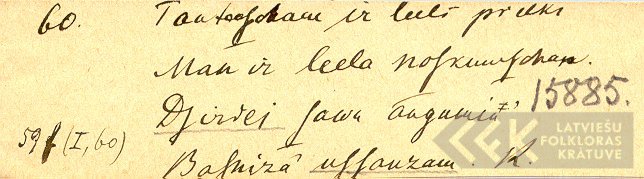 60. Tauteescham ir leels preeks
Man ir leela noskumschan.
Dsirdej sawu augumiņ' 15885.
59 f (I, 60) Basnizā ussauzam. K.
LATVIEŠU
FOLKLORAS
KRĀTUVE